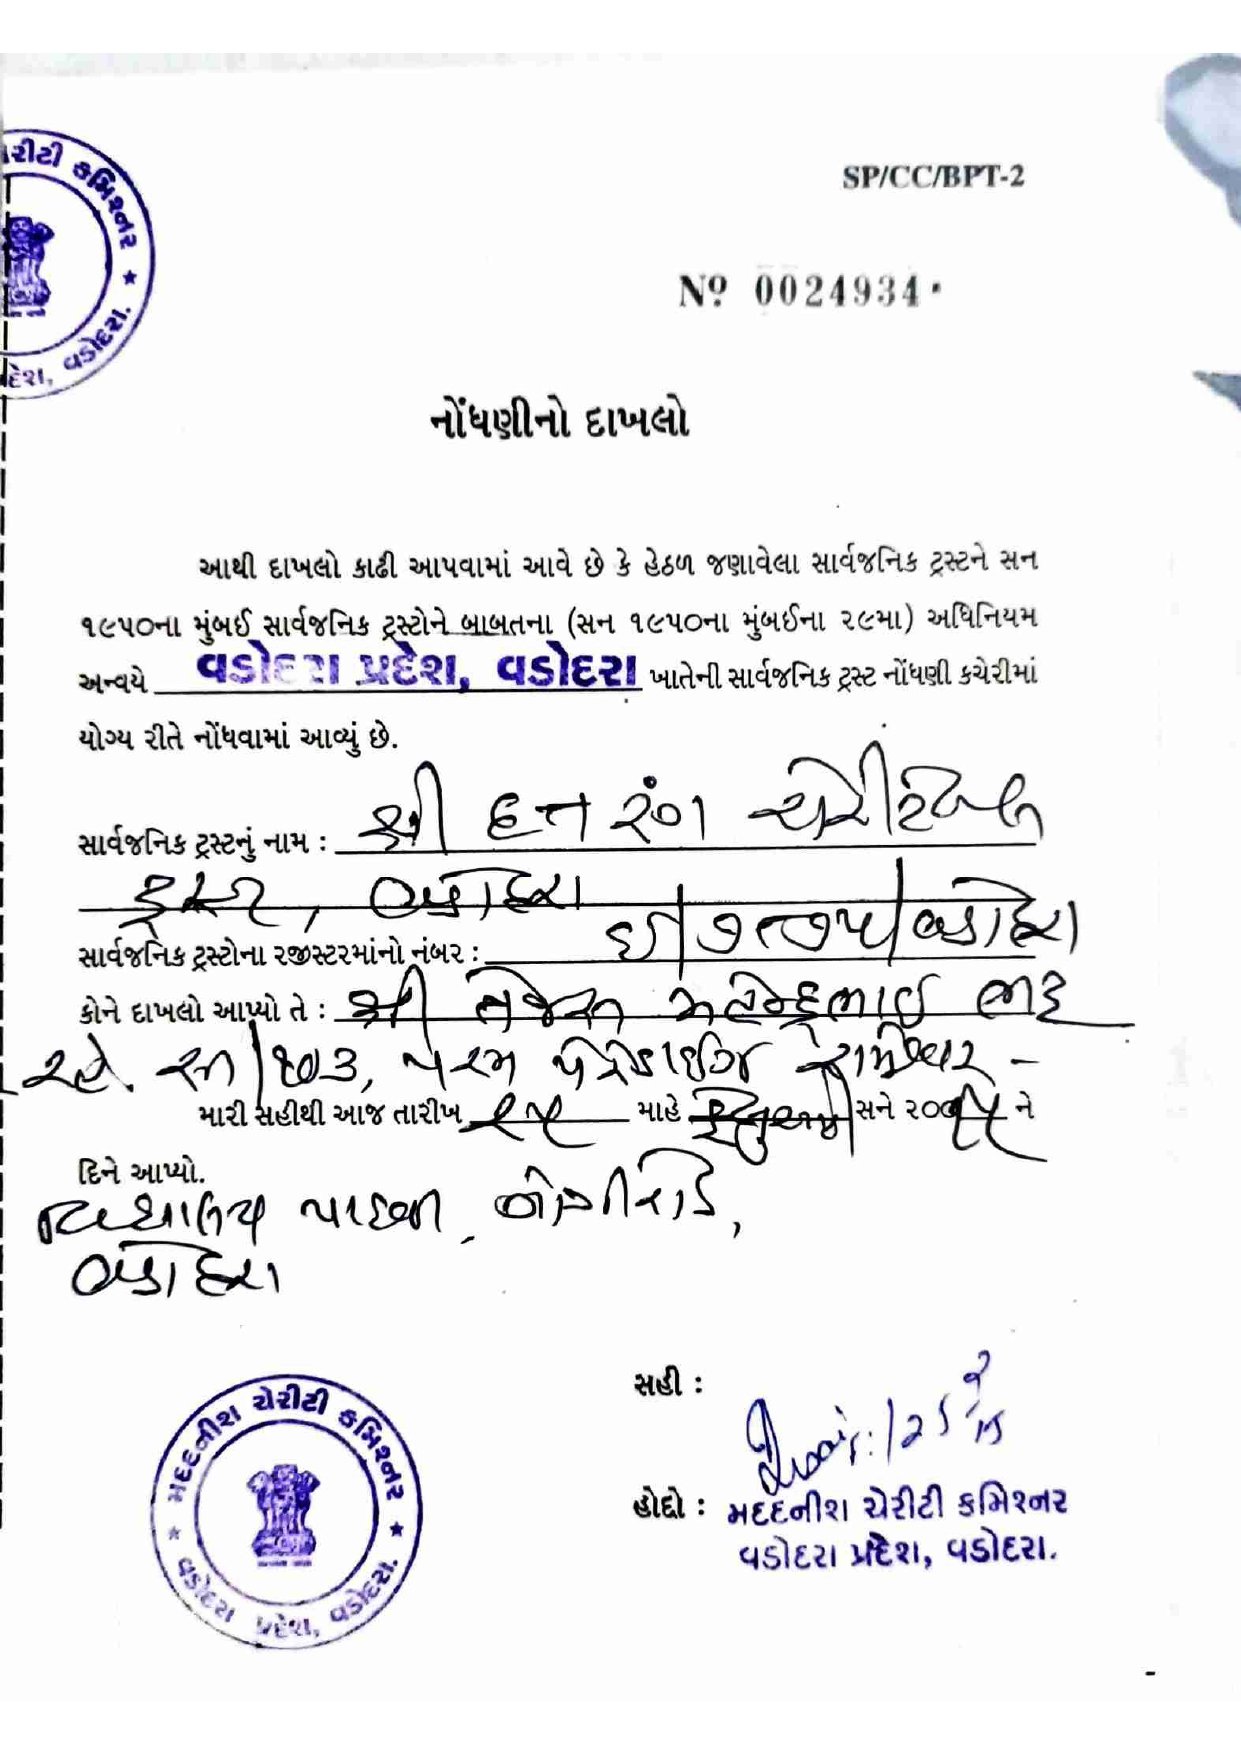 રીટી કમિશ્નર ★
દેશ, વડોદરા.
SP/CC/BPT-2
Nº 0024934
નોંધણીનો દાખલો
આથી દાખલો કાઢી આપવામાં આવે છે કે હેઠળ જણાવેલા સાર્વજનિક ટ્રસ્ટને સન
૧૯૫૦ના મુંબઈ સાર્વજનિક ટ્રસ્ટોને બાબતના (સન ૧૯૫૦ના મુંબઈના ૨૯મા) અધિનિયમ
અન્વયે વડોદરા પ્રદેશ, વડોદરા ખાતેની સાર્વજનિક ટ્રસ્ટ નોંધણી કચેરીમાં
યોગ્ય રીતે નોંધવામાં આવ્યું છે.
સાર્વજનિક ટ્રસ્ટનું નામ : શ્રી દત્ત રંગ ચેરીટેબલ
ટ્રસ્ટ, વડોદરા
સાર્વજનિક ટ્રસ્ટોના રજીસ્ટરમાંનો નંબર : ઈ/૭૮૭૫/વડોદરા
કોને દાખલો આપ્યો તે : શ્રી તેજસ મહેન્દ્રભાઈ ભટ્ટ
રહે. /૧૦૩, પરમ પેરેડાઈઝ રામેશ્વર -
મારી સહીથી આજ તારીખ ૨૫ માહે સને ૨૦૧૫ ને
દિને આપ્યો.
વિદ્યાલય પાછળ,
વડોદરા
સહી :
હોદ્દો : મદદનીશ ચેરીટી કમિશ્નર
વડોદરા પ્રદેશ, વડોદરા.
મદદનીશ ચેરીટી કમિશ્નર
★ વડોદરા પ્રદેશ, વડોદરા. ★